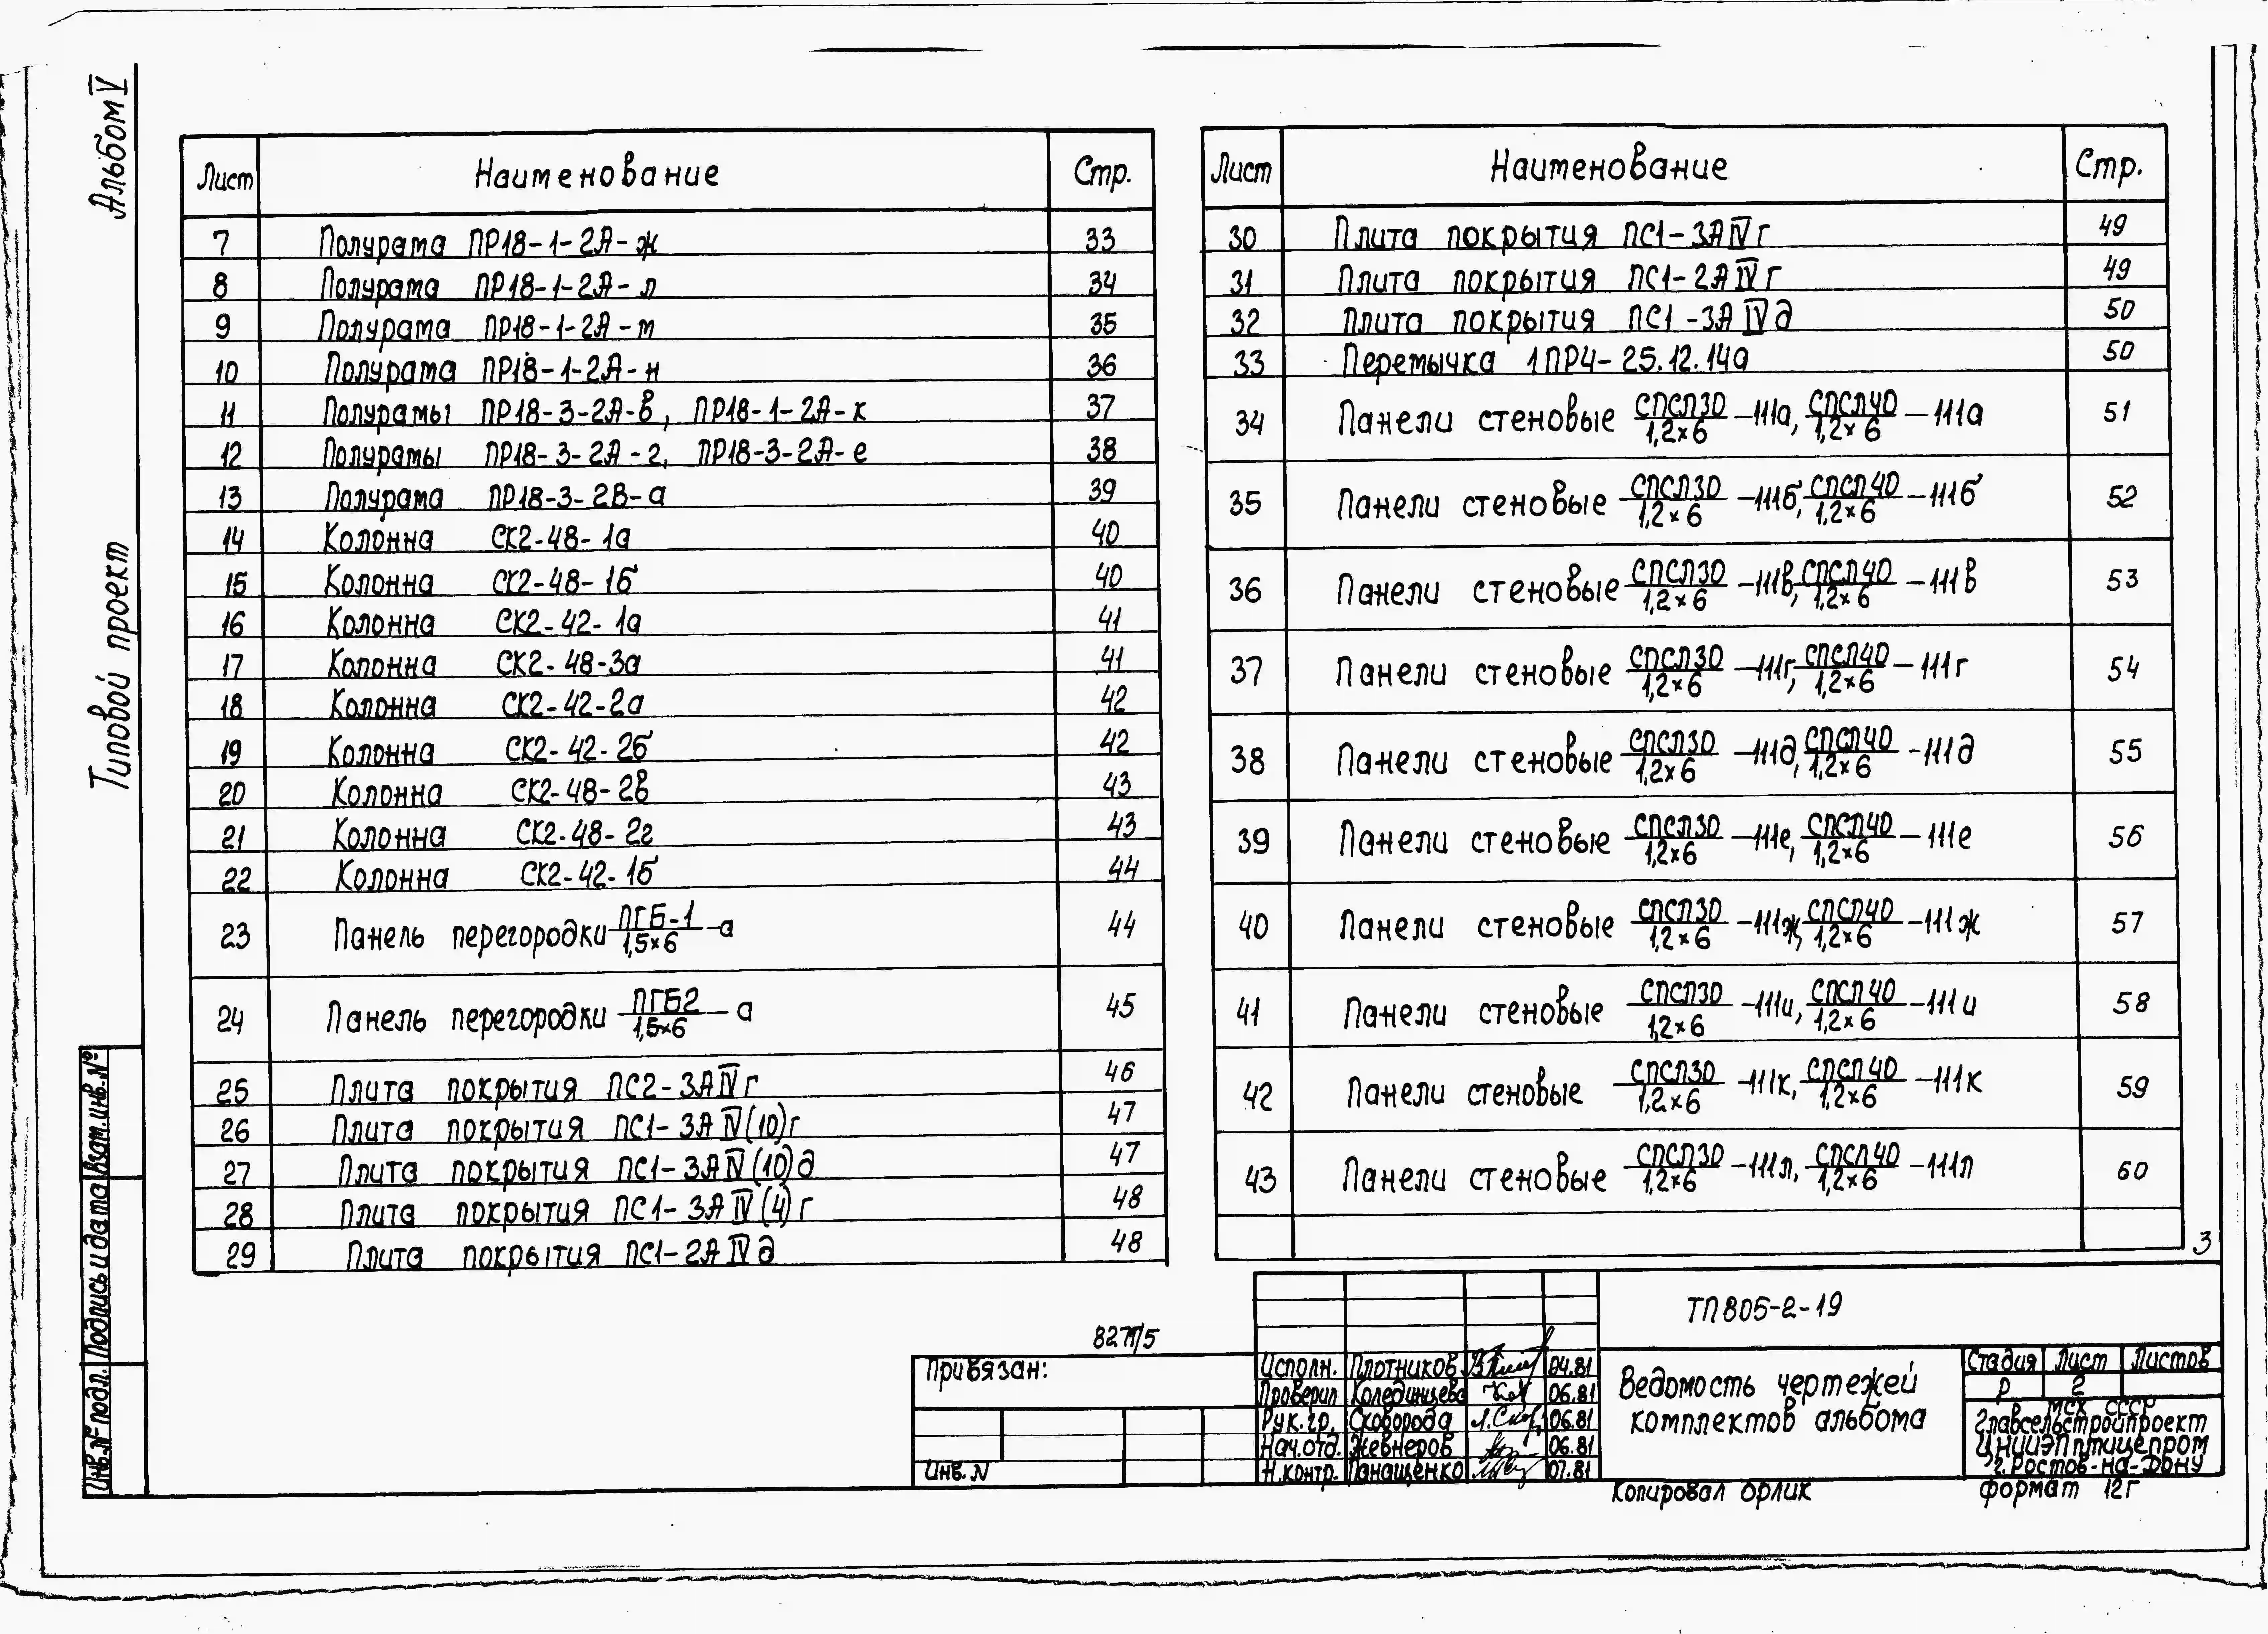 Альбом V
Типовой проект
Лист Наименование Стр.
7 Полурама ПР18-1-2А-ж 33
8 Полурама ПР18-1-2А-л 34
9 Полурама ПР18-1-2А-м 35
10 Полурама ПР18-1-2А-н 36
11 Полурамы ПР18-3-2А-в, ПР18-1-2А-к 37
12 Полурамы ПР18-3-2А-г, ПР18-3-2А-е 38
13 Полурама ПР18-3-2В-а 39
14 Колонна СК2-48-1а 40
15 Колонна СК2-48-1б 40
16 Колонна СК2-42-1а 41
17 Колонна СК2-48-3а 41
18 Колонна СК2-42-2а 42
19 Колонна СК2-42-2б 42
20 Колонна СК2-48-2в 43
21 Колонна СК2-48-2г 43
22 Колонна СК2-42-1б 44
23 Панель перегородки ПГБ-1/1,5×6 -а 44
24 Панель перегородки ПГБ2/1,5×6 -а 45
25 Плита покрытия ПС2-3АIVг 46
26 Плита покрытия ПС1-3АIV(10)г 47
27 Плита покрытия ПС1-3АIV(10)д 47
28 Плита покрытия ПС1-3АIV(4)г 48
29 Плита покрытия ПС1-2АIVд 48
Лист Наименование Стр.
30 Плита покрытия ПС1-3АIVг 49
31 Плита покрытия ПС1-2АIVг 49
32 Плита покрытия ПС1-3АIVд 50
33 Перемычка 1ПР4-25.12.14а 50
34 Панели стеновые СПСЛ30/1,2×6 -111а, СПСЛ40/1,2×6 -111а 51
35 Панели стеновые СПСЛ30/1,2×6 -111б, СПСЛ40/1,2×6 -111б 52
36 Панели стеновые СПСЛ30/1,2×6 -111в, СПСЛ40/1,2×6 -111в 53
37 Панели стеновые СПСЛ30/1,2×6 -111г, СПСЛ40/1,2×6 -111г 54
38 Панели стеновые СПСЛ30/1,2×6 -111д, СПСЛ40/1,2×6 -111д 55
39 Панели стеновые СПСЛ30/1,2×6 -111е, СПСЛ40/1,2×6 -111е 56
40 Панели стеновые СПСЛ30/1,2×6 -111ж, СПСЛ40/1,2×6 -111ж 57
41 Панели стеновые СПСЛ30/1,2×6 -111и, СПСЛ40/1,2×6 -111и 58
42 Панели стеновые СПСЛ30/1,2×6 -111к, СПСЛ40/1,2×6 -111к 59
43 Панели стеновые СПСЛ30/1,2×6 -111л, СПСЛ40/1,2×6 -111л 60
3
Инв.№ подл. Подпись и дата Взам.инв.№
Привязан:
Инв.N
Исполн. Плотников 04.81
Проверил Колединцева 06.81
Рук.гр. Сковорода 06.81
Нач.отд. Жевнеров 06.81
Н.контр. Панащенко 07.81
ТП805-2-19
Ведомость чертежей
комплектов альбома
Стадия Лист Листов
Р 2
МСХ СССР
Главсельстройпроект
ЦНИИЭПптицепром
г.Ростов-на-Дону
Копировал Орлик
формат 12г